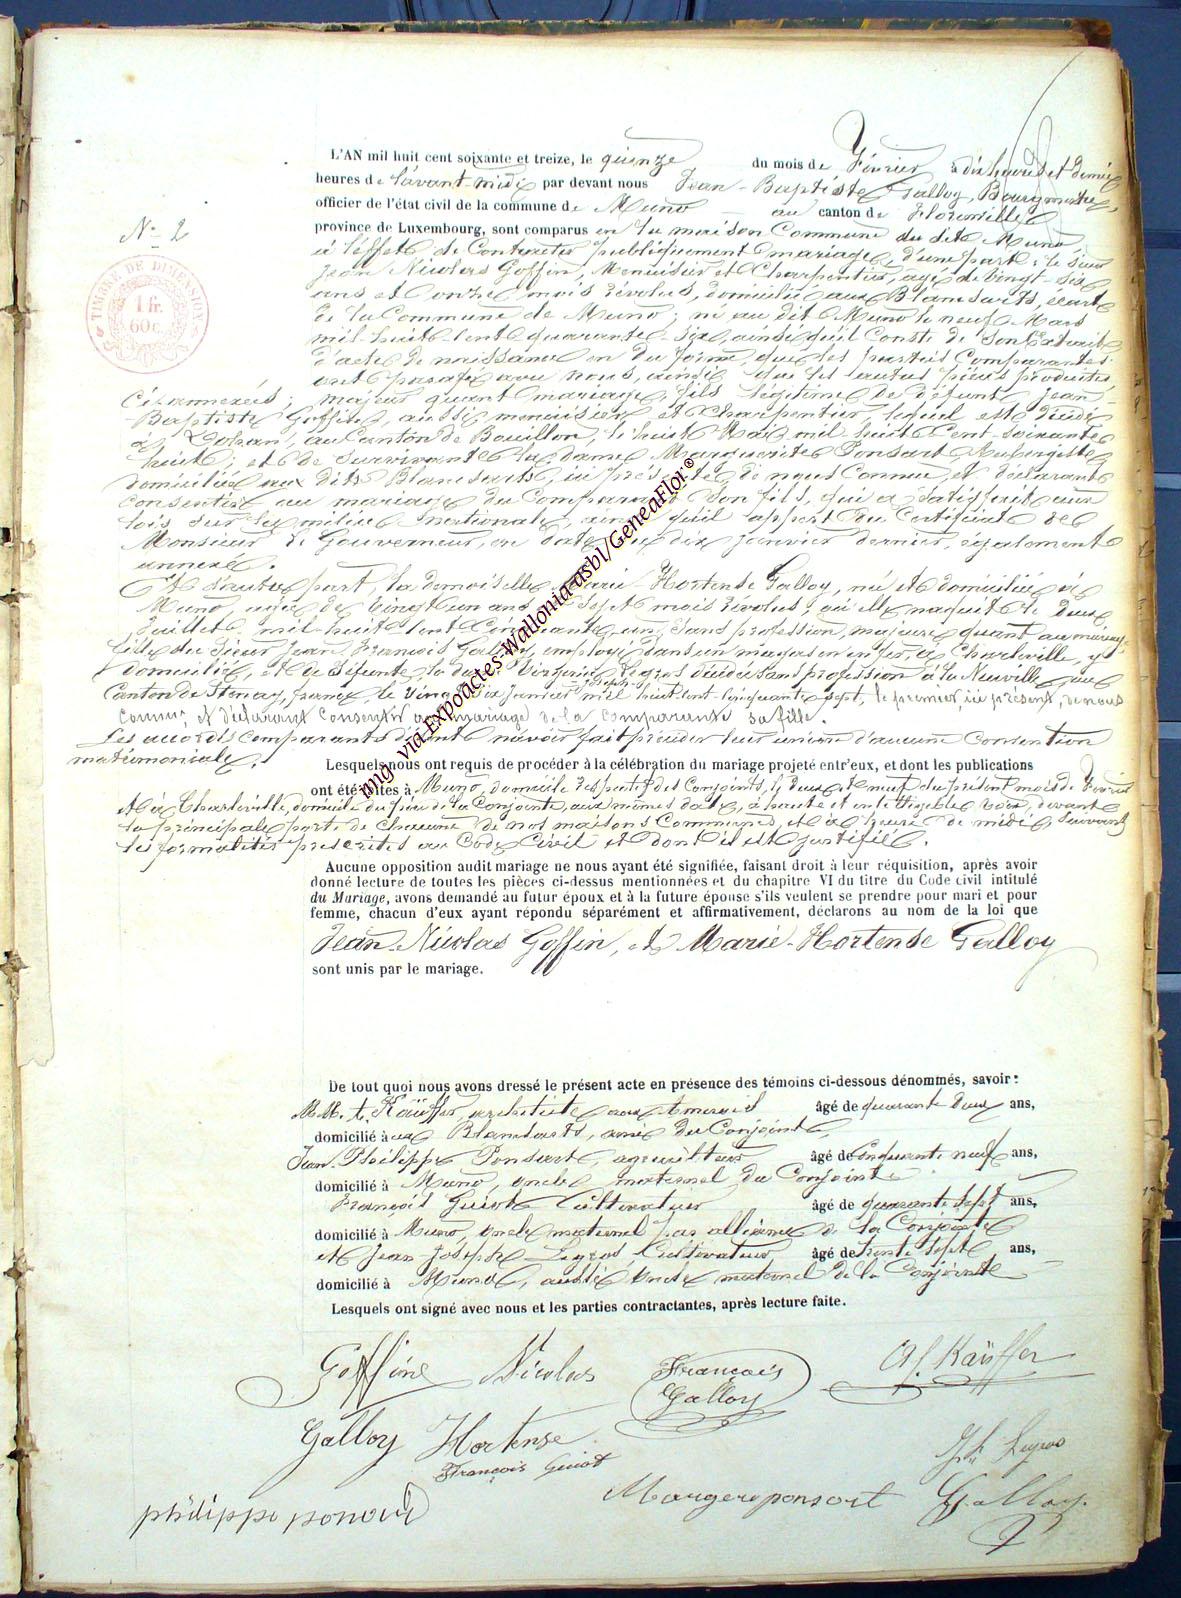 N° 2
TIMBRE DE DIMENSION
1 fr.
60 c.
L'AN mil huit cent soixante et treize, le quinze du mois de Février à dix heures et demie
heures de l'avant-midi par devant nous Jean-Baptiste Galloy, Bourgmestre,
officier de l'état civil de la commune de Muno au canton de Florenville
province de Luxembourg, sont comparus en la maison Commune du dit Muno,
à l'effet de Contracter publiquement mariage, d'une part : le sieur
Jean Nicolas Goffin, Menuisier et Charpentier, agé de vingt-six
ans et onze mois révolus, domicilié aux Blancsarts, écart
de la Commune de Muno ; né au dit Muno le neuf Mars
mil-huit-cent quarante-six, ainsi qu'il Conste de son Extrait
d'acte de naissance en due forme que les parties Comparantes
ont parafé avec nous, ainsi que les autres pièces produites,
ci-annexées ; majeur quant mariage, fils légitime de défunt Jean-
Baptiste Goffin, aussi menuisier et charpentier lequel est décédé
à Dohan, au Canton de Bouillon, le huit Mai mil huit Cent-soixante
huit ; et de survivante la dame Marguerite Ponsart Aubergiste
domiciliée aux dits Blancsarts, ici présente, de nous Connue, et déclarant
consentir au mariage du Comparant son fils, qui a satisfait aux
lois sur la milice nationale, ainsi qu'il appert du Certificat de
Monsieur le Gouverneur, en date du dix janvier dernier, également
annexé.
Et d'autre part, la demoiselle Marie-Hortense Galloy, née et domiciliée à
Muno, agée de vingt un ans et sept mois révolus, où elle naquit le deux
Juillet mil-huit-cent Cinquante un, sans profession, majeure quant au mariage,
fille du sieur Jean François Galloy, employé dans un magasin en fer, à Charleville, y
domicilié, et de défunte, la dame Virginie Legros décédée sans profession à la Neuville au
Canton de Stenay, france, le vingt six janvier mil huit cent cinquante sept, le premier, ici présent, de nous
connu, et déclarant consentir au mariage de la comparante sa fille.
Les accordés comparants déclarent n'avoir fait précéder leur union d'aucune convention
matrimoniale.
Lesquels nous ont requis de procéder à la célébration du mariage projeté entr'eux, et dont les publications
ont été faites à Muno, domicile respectif des Conjoints, le deux et neuf du présent mois de Février
et à Charleville, domicile du père de la Conjointe, aux mêmes dates, à haute et intelligible voix, devant
la principale porte de chacune de nos maisons Communes, et à l'heure de midi, suivant
les formalités prescrites au Code Civil et dont il est justifié.
Aucune opposition audit mariage ne nous ayant été signifiée, faisant droit à leur réquisition, après avoir
donné lecture de toutes les pièces ci-dessus mentionnées et du chapitre VI du titre du Code civil intitulé
du Mariage, avons demandé au futur époux et à la future épouse s'ils veulent se prendre pour mari et pour
femme, chacun d'eux ayant répondu séparément et affirmativement, déclarons au nom de la loi que
Jean-Nicolas Goffin, et Marie-Hortense Galloy
sont unis par le mariage.
De tout quoi nous avons dressé le présent acte en présence des témoins ci-dessous dénommés, savoir :
MM. Käuffer, âgé de quarante deux ans,
domicilié aux Blancsarts, ami du Conjoint,
Jean-Philippe Ponsart, agriculteur âgé de Cinquante neuf ans,
domicilié à Muno, oncle maternel du Conjoint
François Guiot Cultivateur âgé de quarante sept ans,
domicilié à Muno, oncle maternel par alliance de la Conjointe
et Jean-Joseph Legros Cultivateur âgé de trente sept ans,
domicilié à Muno, aussi oncle maternel de la Conjointe
Lesquels ont signé avec nous et les parties contractantes, après lecture faite.
Goffine Nicolas François Galloy Af. Käuffer
Galloy Hortense
François Guiot
Legros
Philippe ponsart Marger ponsart Galloy
img via Expoactes-Wallonia-asbl/GeneaFlor©